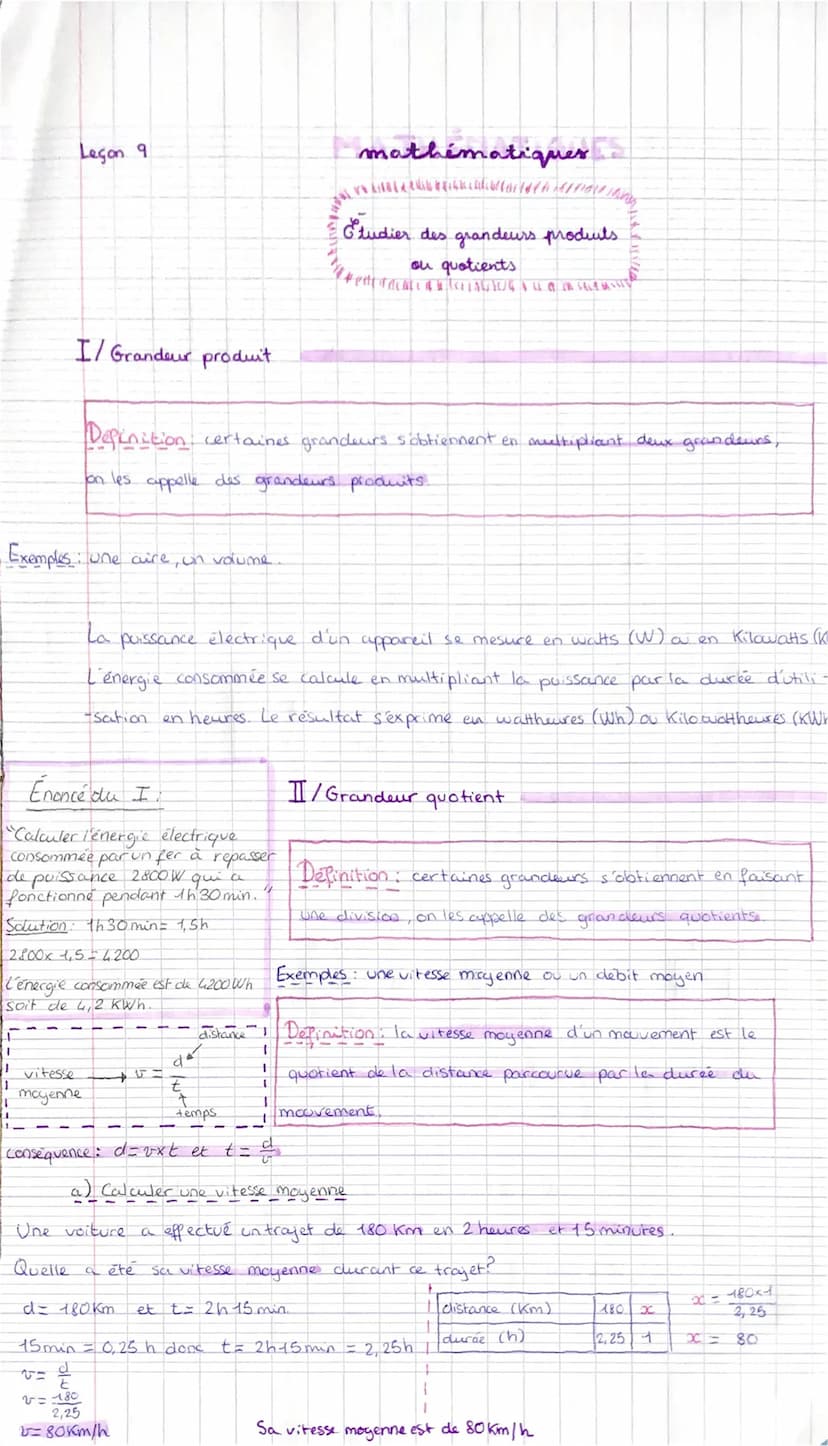 Leçon 9
mathématiques
Étudier des grandeurs produits
ou quotients
I/ Grandeur produit
Définition: certaines grandeurs s'obtiennent en multipliant deux grandeurs,
on les appelle des grandeurs produits.
Exemples: une aire, un volume.
La puissance électrique d'un appareil se mesure en watts (W) ou en Kilowatts (K
L'énergie consommée se calcule en multipliant la puissance par la durée d'utili-
-sation en heures. Le résultat s'exprime en wattheures (Wh) ou Kilowattheures (KWh
Énoncé du I:
"Calculer l'énergie électrique
consommée par un fer à repasser
de puissance 2800W qui a
fonctionné pendant 1h30min."
Solution: 1h30min= 1,5h
2800x 1,5 = 4200
L'énergie consommée est de 4200Wh
soit de 4,2 KWh.
distance
vitesse moyenne → v = d/t
temps
conséquence: d= v×t et t= d/v
II/Grandeur quotient
Définition: certaines grandeurs s'obtiennent en faisant
une division, on les appelle des grandeurs quotients.
Exemples: une vitesse moyenne ou un débit moyen
Définition: la vitesse moyenne d'un mouvement est le
quotient de la distance parcourue par la durée du
mouvement.
a) Calculer une vitesse moyenne
Une voiture a effectué un trajet de 180 Km en 2 heures et 15 minutes.
Quelle a été sa vitesse moyenne durant ce trajet?
d= 180Km et t= 2h15min.
15min = 0,25 h donc t= 2h15min = 2,25h
v= d/t
v= 180/2,25
v= 80Km/h
distance (Km) 180 x
durée (h) 2,25 1
x = 180×1/2,25
x = 80
Sa vitesse moyenne est de 80Km/h